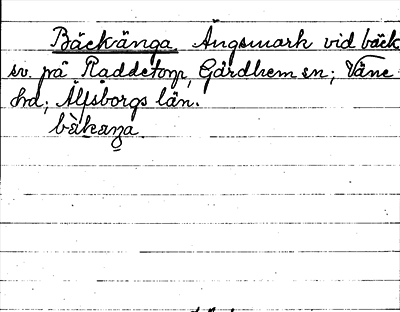 Bäckänga. Ängsmark vid bäck
sv. på Raddetorp, Gärdhem sn; Väne
hd; Älfsborgs län.
bäkaŋa.